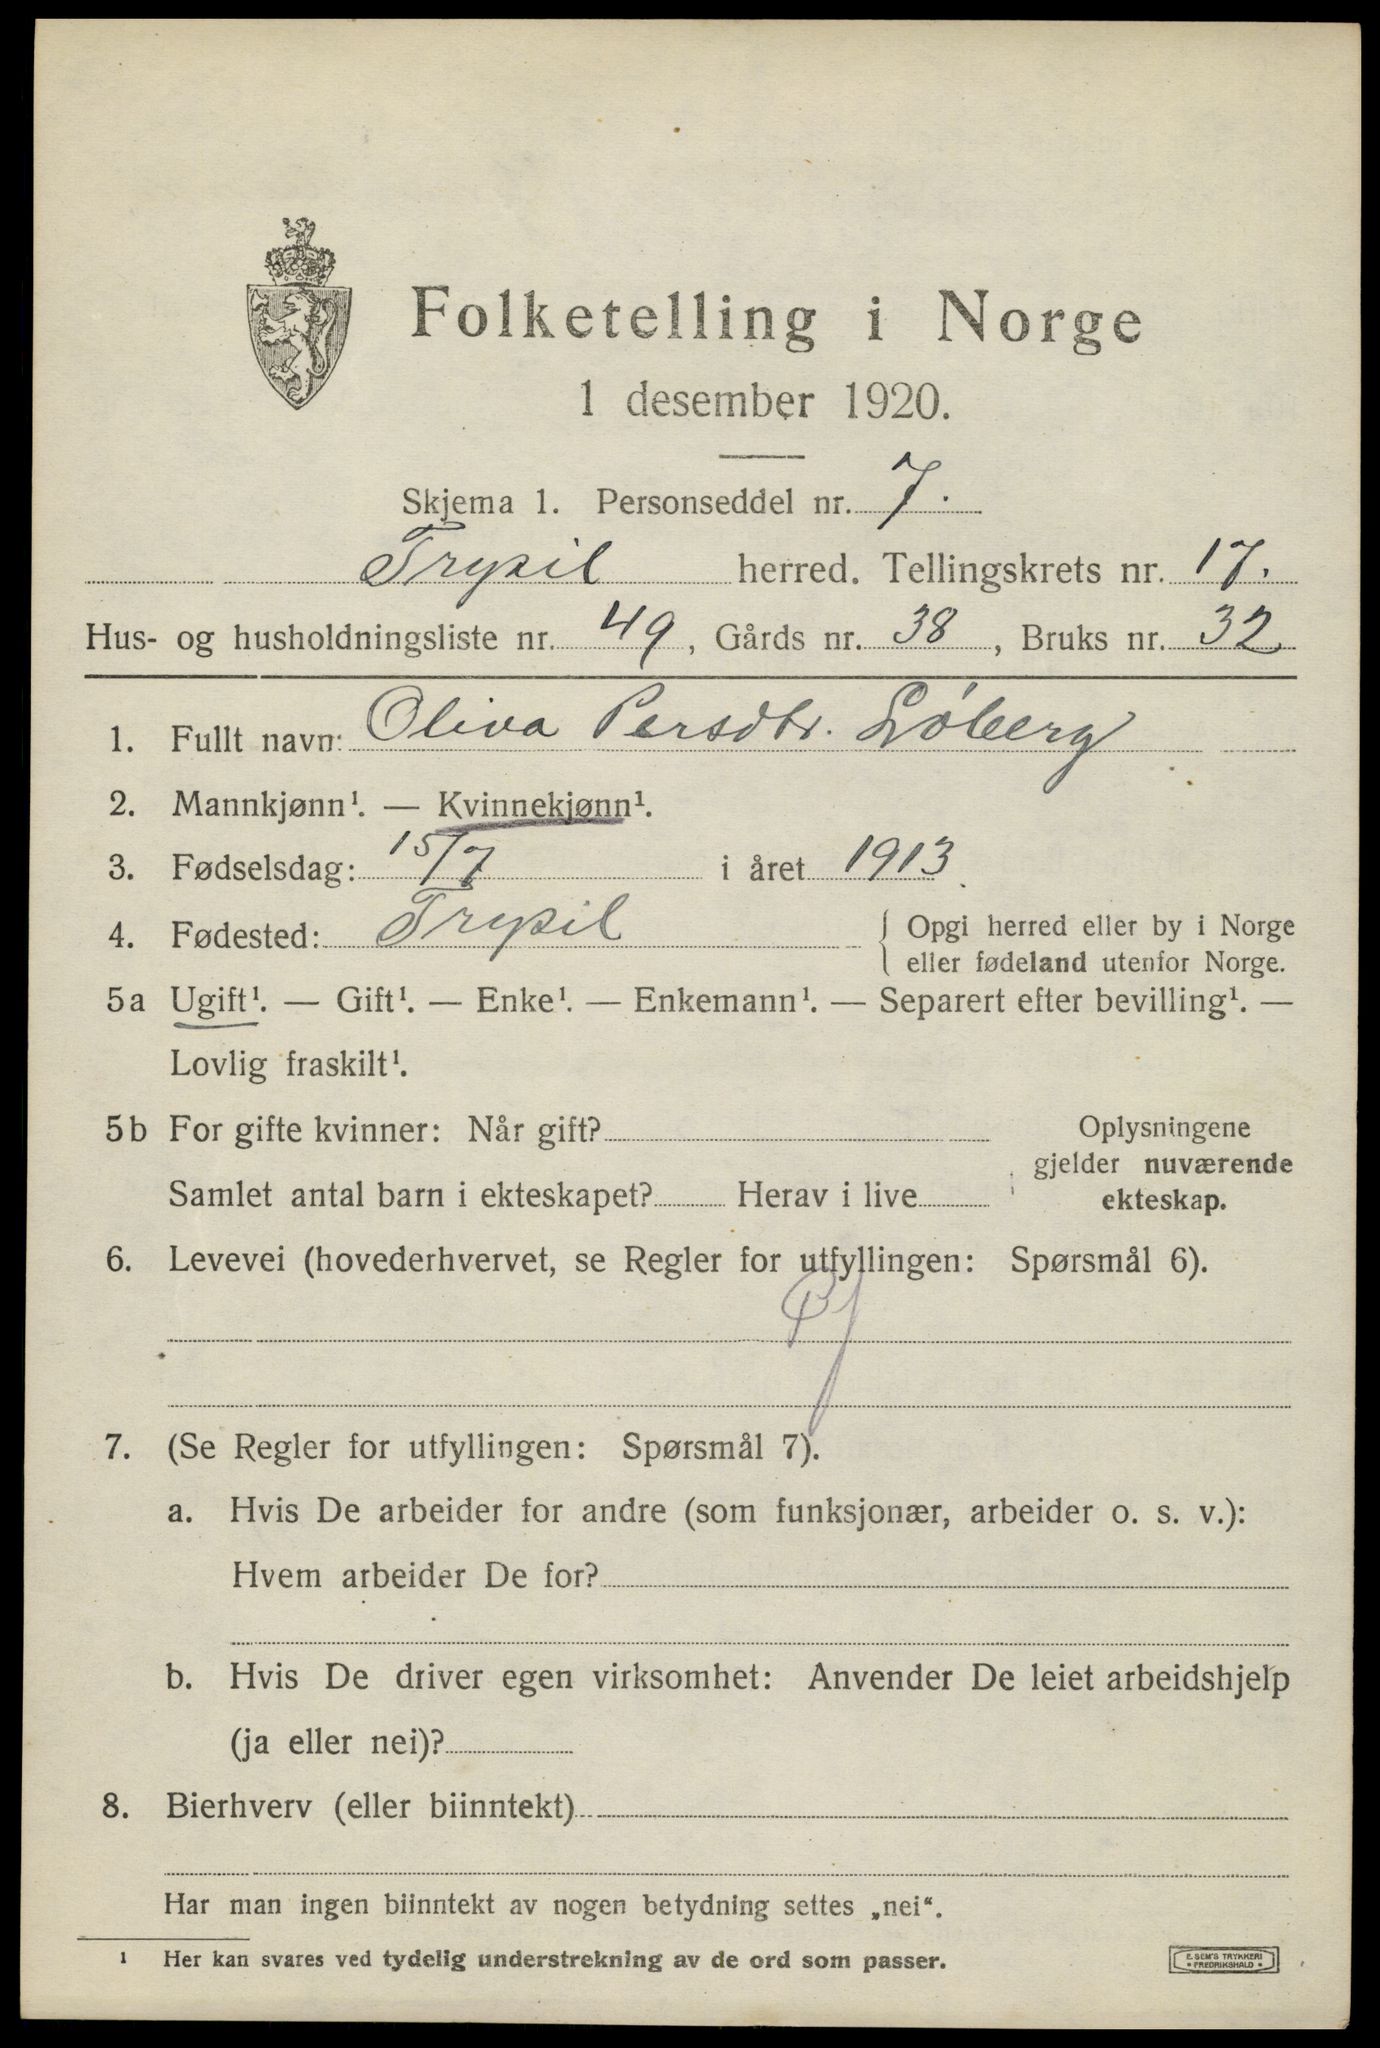 Folketelling i Norge
1 desember 1920.
Skjema 1. Personseddel nr. 7.
Trysil herred. Tellingskrets nr. 17.
Hus- og husholdningsliste nr. 49, Gårds nr. 38, Bruks nr. 32
1. Fullt navn: Oliva Persdtr. Løberg
2. Mannkjønn¹. — Kvinnekjønn¹.
3. Fødselsdag: 15/7 i året 1913
4. Fødested: Trysil { Opgi herred eller by i Norge
eller fødeland utenfor Norge.
5a Ugift¹. — Gift¹. — Enke¹. — Enkemann¹. — Separert efter bevilling¹. —
Lovlig fraskilt¹.
5b For gifte kvinner: Når gift?
Samlet antal barn i ekteskapet? Herav i live
Oplysningene
gjelder nuværende
ekteskap.
6. Levevei (hovederhvervet, se Regler for utfyllingen: Spørsmål 6).
7. (Se Regler for utfyllingen: Spørsmål 7).
a. Hvis De arbeider for andre (som funksjonær, arbeider o. s. v.):
Hvem arbeider De for?
b. Hvis De driver egen virksomhet: Anvender De leiet arbeidshjelp
(ja eller nei)?
8. Bierhverv (eller biinntekt)
Har man ingen biinntekt av nogen betydning settes „nei“.
¹ Her kan svares ved tydelig understrekning av de ord som passer.
E. SEM'S TRYKKERI
• FREDRIKSHALD •